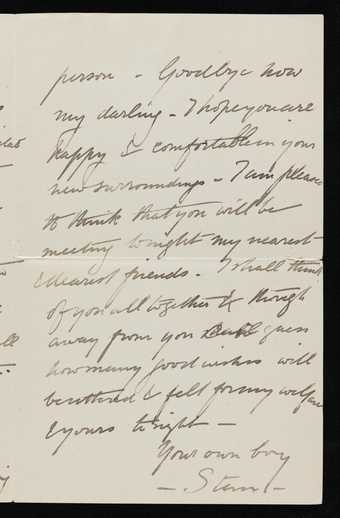 person - Goodbye now
my darling - I hope you are
happy & comfortable in your
new surroundings - I am pleased
to think that you will be
meeting tonight my nearest
& dearest friends. I shall think
of you all together & though
away from you guess
how many good wishes will
be uttered & felt for my welfare
& yours tonight -
Your own boy
- Stan -